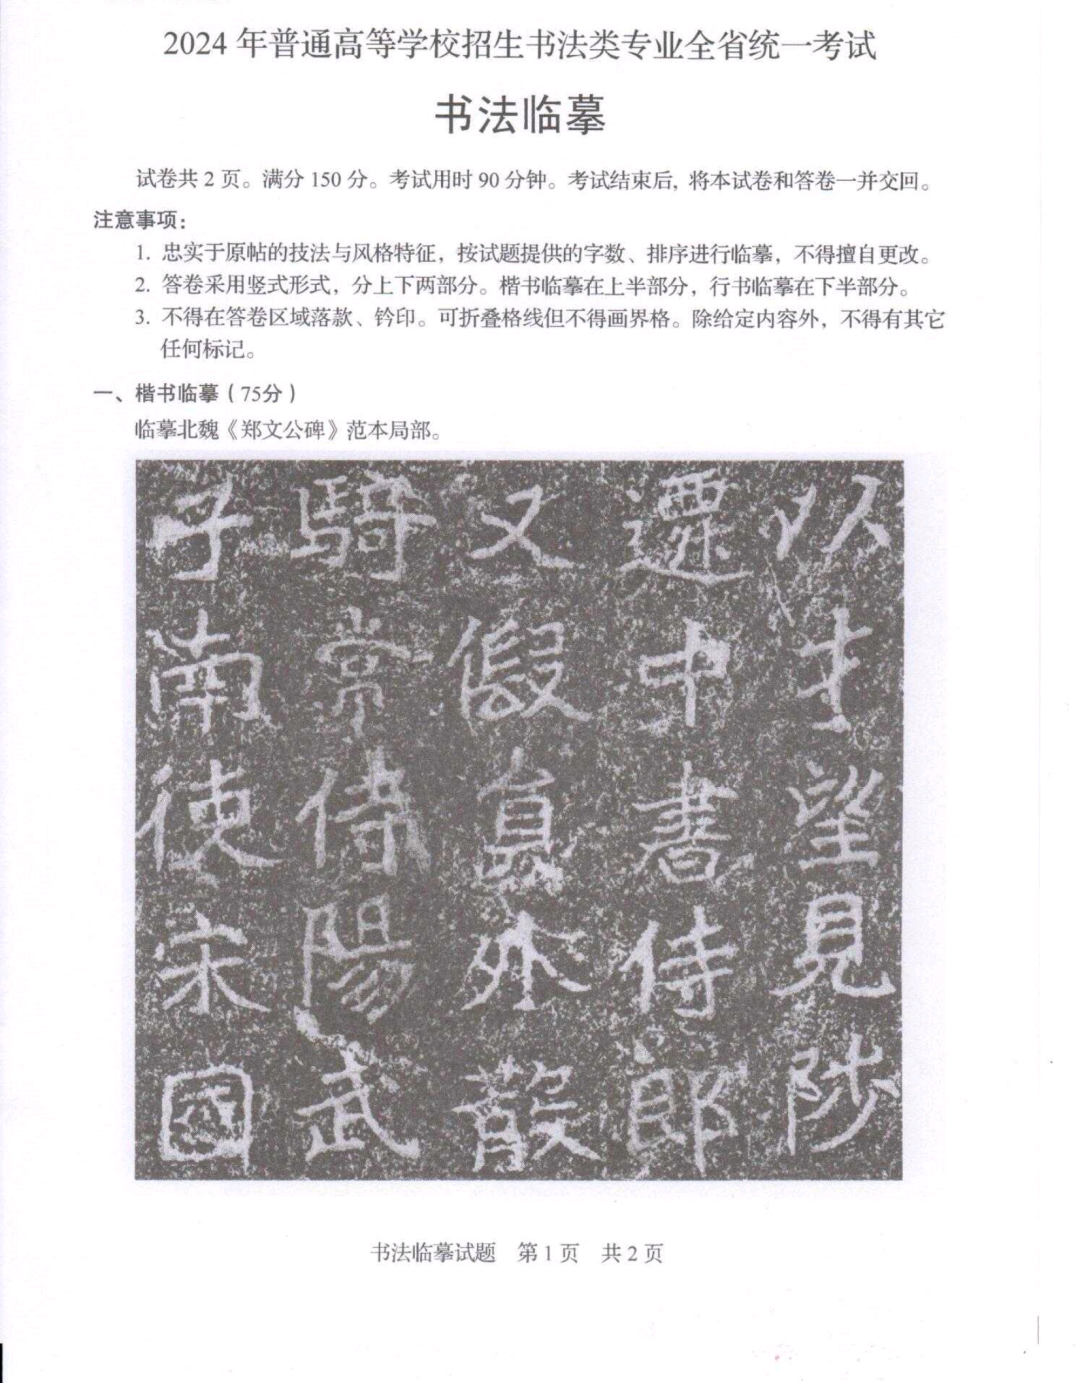 2024年普通高等学校招生书法类专业全省统一考试
书法临摹
试卷共2页。满分150分。考试用时90分钟。考试结束后, 将本试卷和答卷一并交回。
注意事项:
1. 忠实于原帖的技法与风格特征，按试题提供的字数、排序进行临摹，不得擅自更改。
2. 答卷采用竖式形式，分上下两部分。楷书临摹在上半部分，行书临摹在下半部分。
3. 不得在答卷区域落款、钤印。可折叠格线但不得画界格。除给定内容外，不得有其它
任何标记。
一、楷书临摹（75分）
临摹北魏《郑文公碑》范本局部。
以才望見陟
遷中書侍郎
又假員外散
騎常侍陽武
子南使宋國
书法临摹试题 第1页 共2页